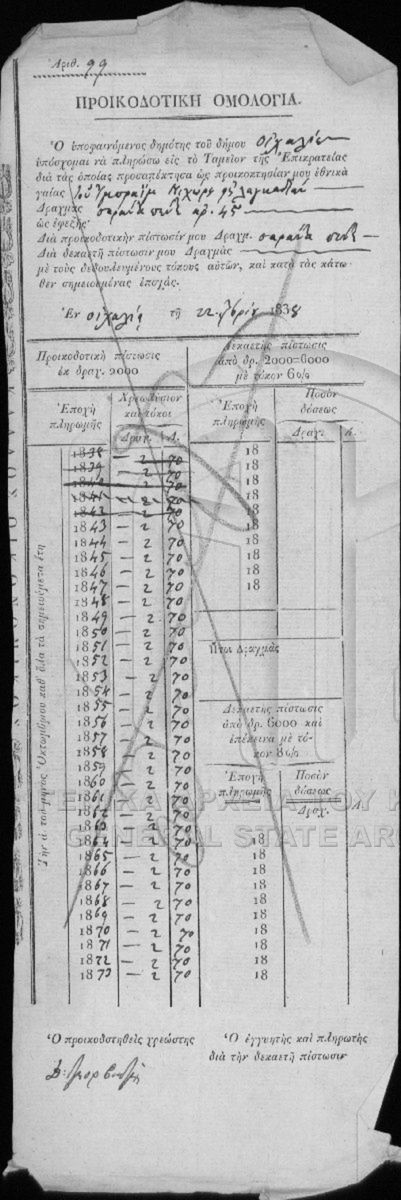 Ἀριθ. 99
ΠΡΟΙΚΟΔΟΤΙΚΗ ΟΜΟΛΟΓΙΑ.
Ὁ ὑποφαινόμενος δημότης τοῦ δήμου Οἰχαλίας
ὑπόσχομαι νὰ πληρώσω εἰς τὸ Ταμεῖον τῆς Ἐπικρατείας
διὰ τὰς ὁποίας προσαπέκτησα ὡς προικοκτησίαν μου ἐθνικὰ
γαίας
Δραγμὰς σαράντα πέντε ἀρ. 45
ὡς ἐφεξῆς·
Διὰ προικοδοτικὴν πίστωσίν μου Δραχμ. σαράντα πέντε
Διὰ δεκαετῆ πίστωσίν μου Δραχμὰς
μὲ τοὺς δεβουλευμένους τόκους αὐτῶν, καὶ κατὰ τὰς κάτω-
θεν σημειουμένας ἐποχάς.
Ἐν Οἰχαλίᾳ τῇ 22 1838
Προικοδοτικὴ πίστωσις
ἐκ δραχ. 2000
Δεκαετὴς πίστωσις
ἀπὸ δρ. 2000=6000
μὲ τόκον 6%
Ἐποχὴ
πληρωμῆς
Χρεωλύσιον
καὶ τόκοι
Δραχ. Λ.
Ἐποχὴ
πληρωμῆς
Ποσὸν
δόσεως
Δραχ. Λ.
Τὴν ά. τοῦ μηνὸς Ὀκτωβρίου καθ' ὅλα τὰ σημειούμενα ἔτη
1838 — 2 70
1839 — 2 70
1840 — 2 70
1841 — 2 70
1842 — 2 70
1843 — 2 70
1844 — 2 70
1845 — 2 70
1846 — 2 70
1847 — 2 70
1848 — 2 70
1849 — 2 70
1850 — 2 70
1851 — 2 70
1852 — 2 70
1853 — 2 70
1854 — 2 70
1855 — 2 70
1856 — 2 70
1857 — 2 70
1858 — 2 70
1859 — 2 70
1860 — 2 70
1861 — 2 70
1862 — 2 70
1863 — 2 70
1864 — 2 70
1865 — 2 70
1866 — 2 70
1867 — 2 70
1868 — 2 70
1869 — 2 70
1870 — 2 70
1871 — 2 70
1872 — 2 70
1873 — 2 70
18
18
18
18
18
18
18
18
18
18
Ἤτοι Δραχμὰς
Δεκαετὴς πίστωσις
ἀπὸ δρ. 6000 καὶ
ἐπέκεινα μὲ τό-
κον 8%
Ἐποχὴ
πληρωμῆς
Ποσὸν
δόσεως
Δραχ. Λ.
18
18
18
18
18
18
18
18
18
18
ΓΕΝΙΚΑ ΑΡΧΕΙΑ ΤΟΥ
GENERAL STATE AR
Ὁ προικοδοτηθεὶς χρεώστης
Ὁ ἐγγυητὴς καὶ πληρωτὴς
διὰ τὴν δεκαετῆ πίστωσιν